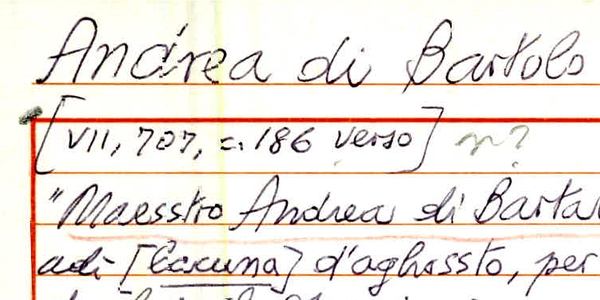 Andrea di Bartolo
[VII, 707, c. 186 verso]
"Maesstro Andrea di
adì [lacuna] d'aghossto, per